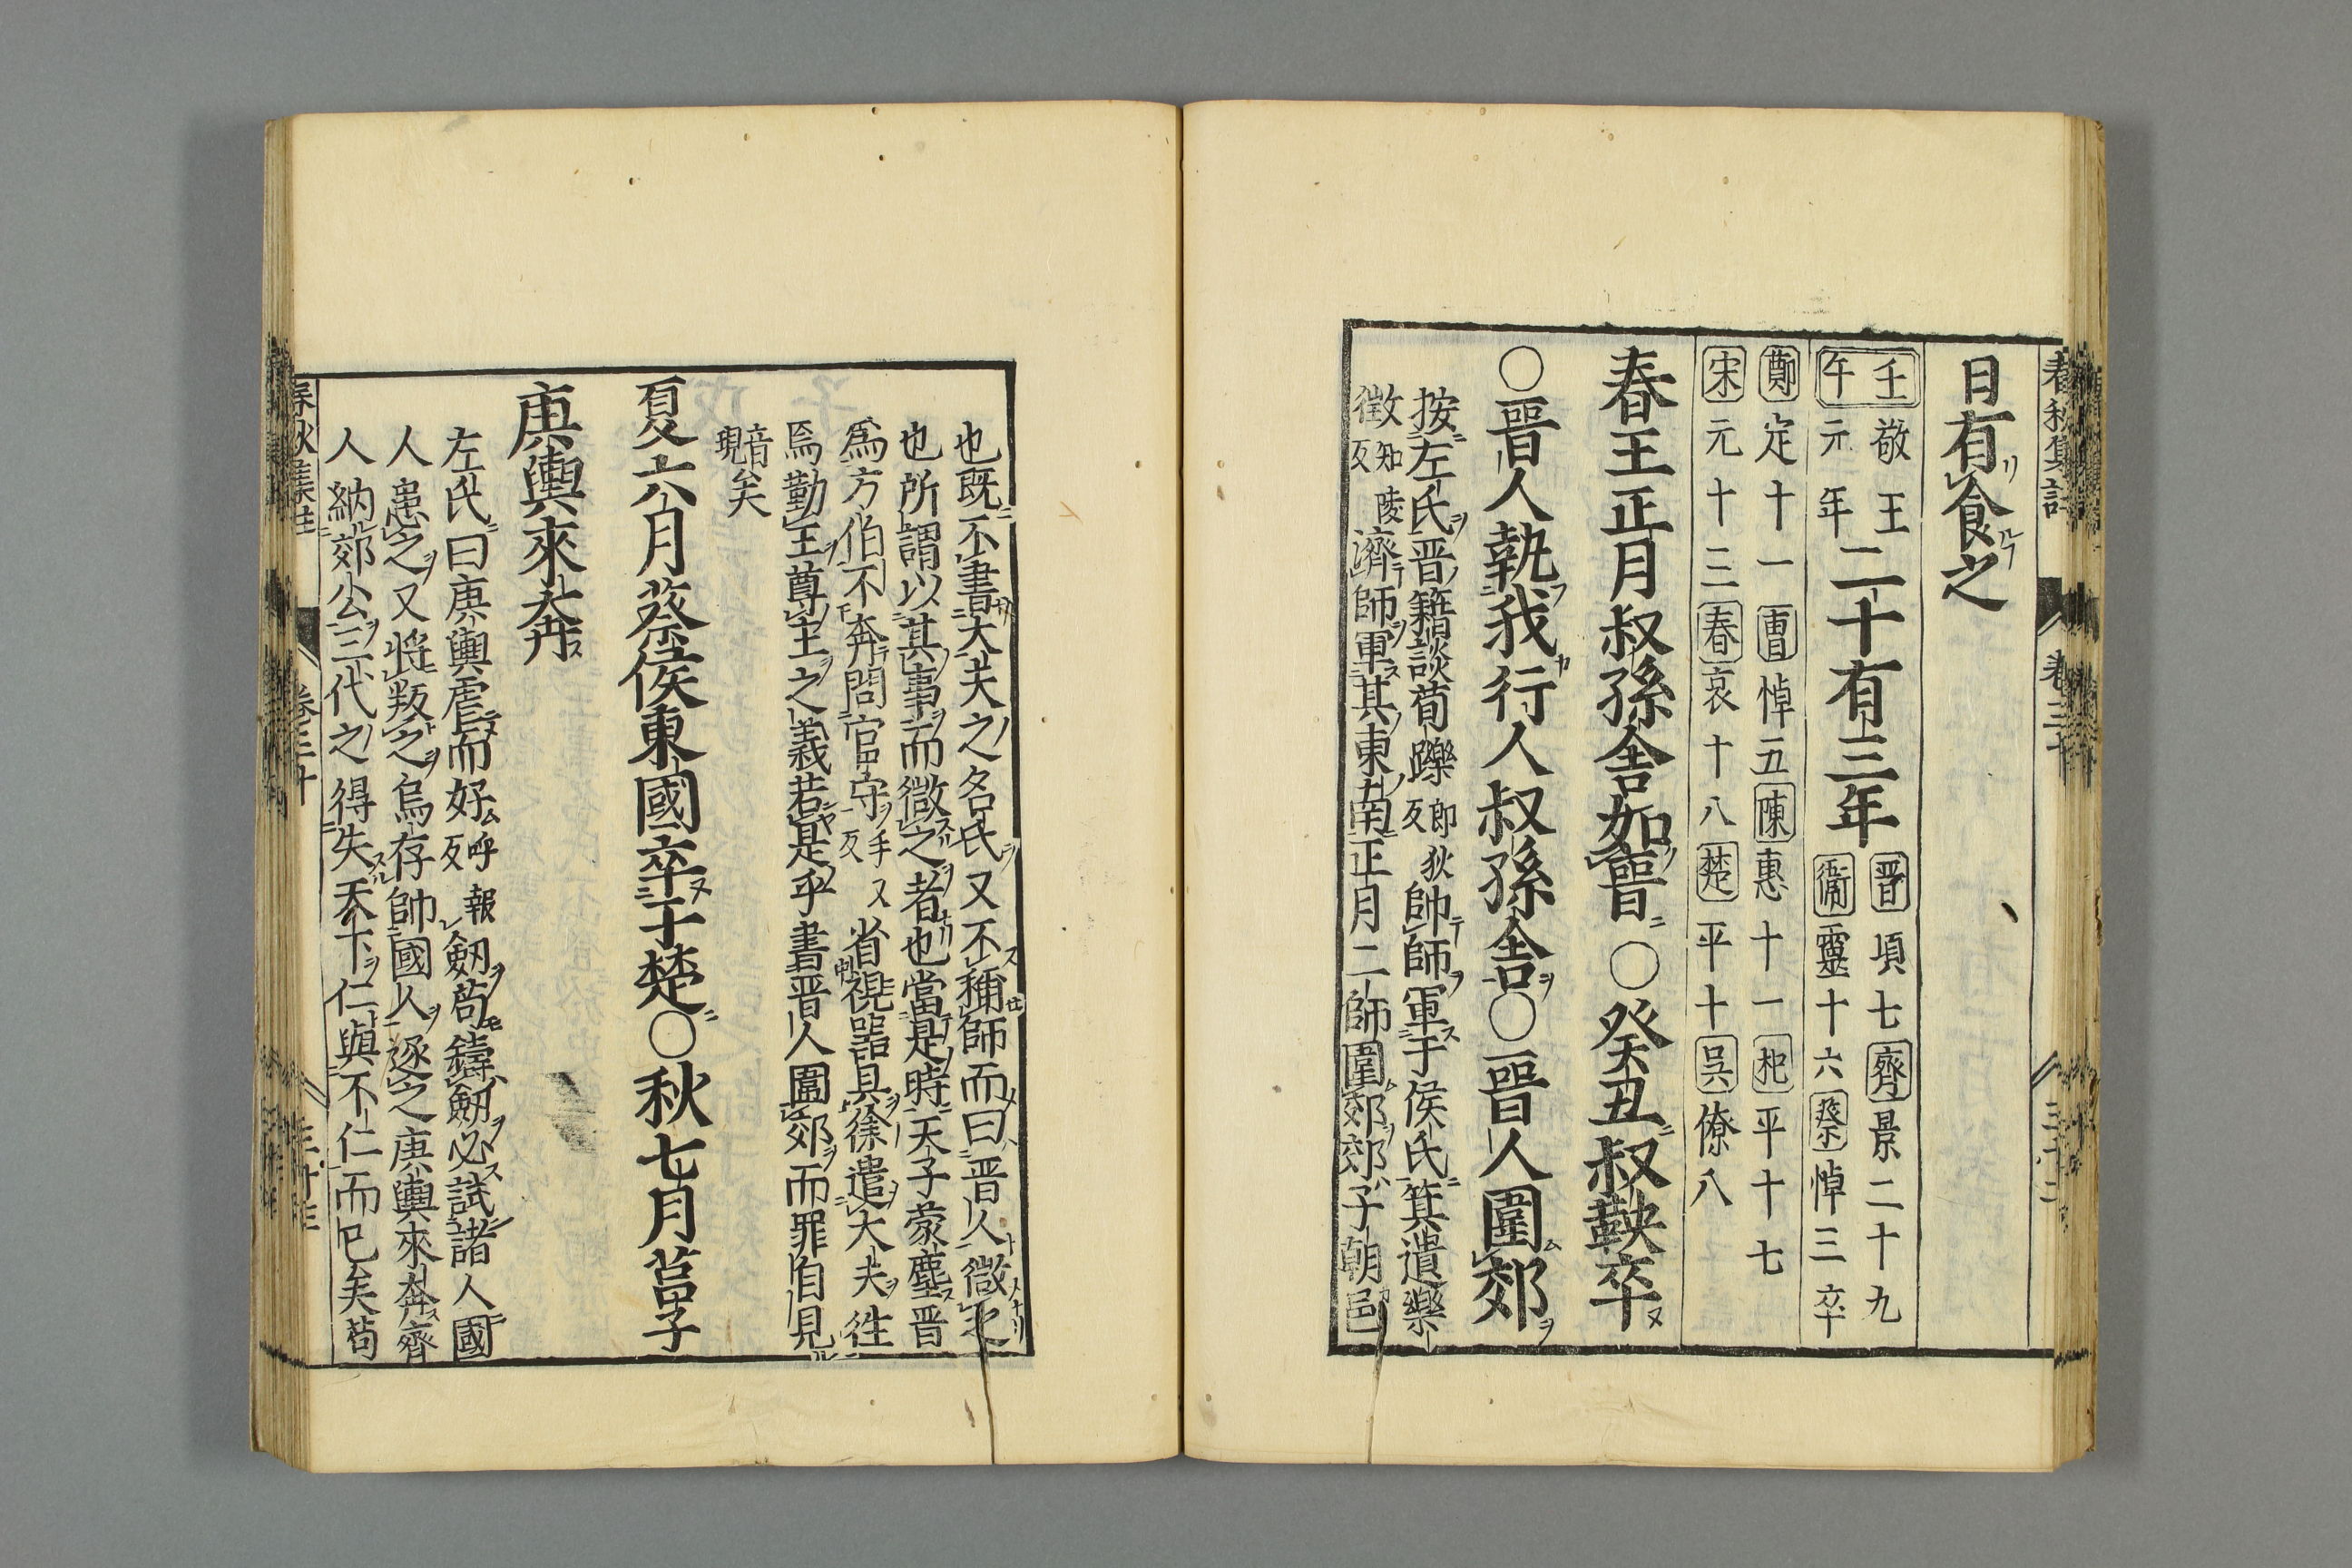 日有食之
壬午 敬王元年 二十有三年 晋頃七 齊景二十九 衞靈十六 蔡悼三卒
鄭定十一 曹悼五 陳惠十一 杞平十七
宋元十三 春哀十八 楚平十 吳僚八
春王正月叔孫舍如晋○癸丑叔鞅卒
○晋人執我行人叔孫舍○晋人圍郊
按左氏晋籍談荀躒郎狄反帥師軍于侯氏箕遺樂
徵知陵反濟師軍其東南正月二師圍郊郊子朝邑
也既不書大夫之名氏又不稱師而曰晋人微之
也所謂以其事而微之者也當是時天子蒙塵晋
爲方伯不奔問官守手又反省視器具徐遣大夫往
焉勤王尊主之義若是乎書晋人圍郊而罪自見
音現矣
夏六月蔡侯東國卒于楚○秋七月莒子
庚輿來奔
左氏曰庚輿虐而好呼報反劒苟鑄劒必試諸人國
人患之又將叛之烏存帥國人逐之庚輿來奔齊
人納郊公三代之得失天下仁與不仁而已矣苟
春秋集註 卷三十